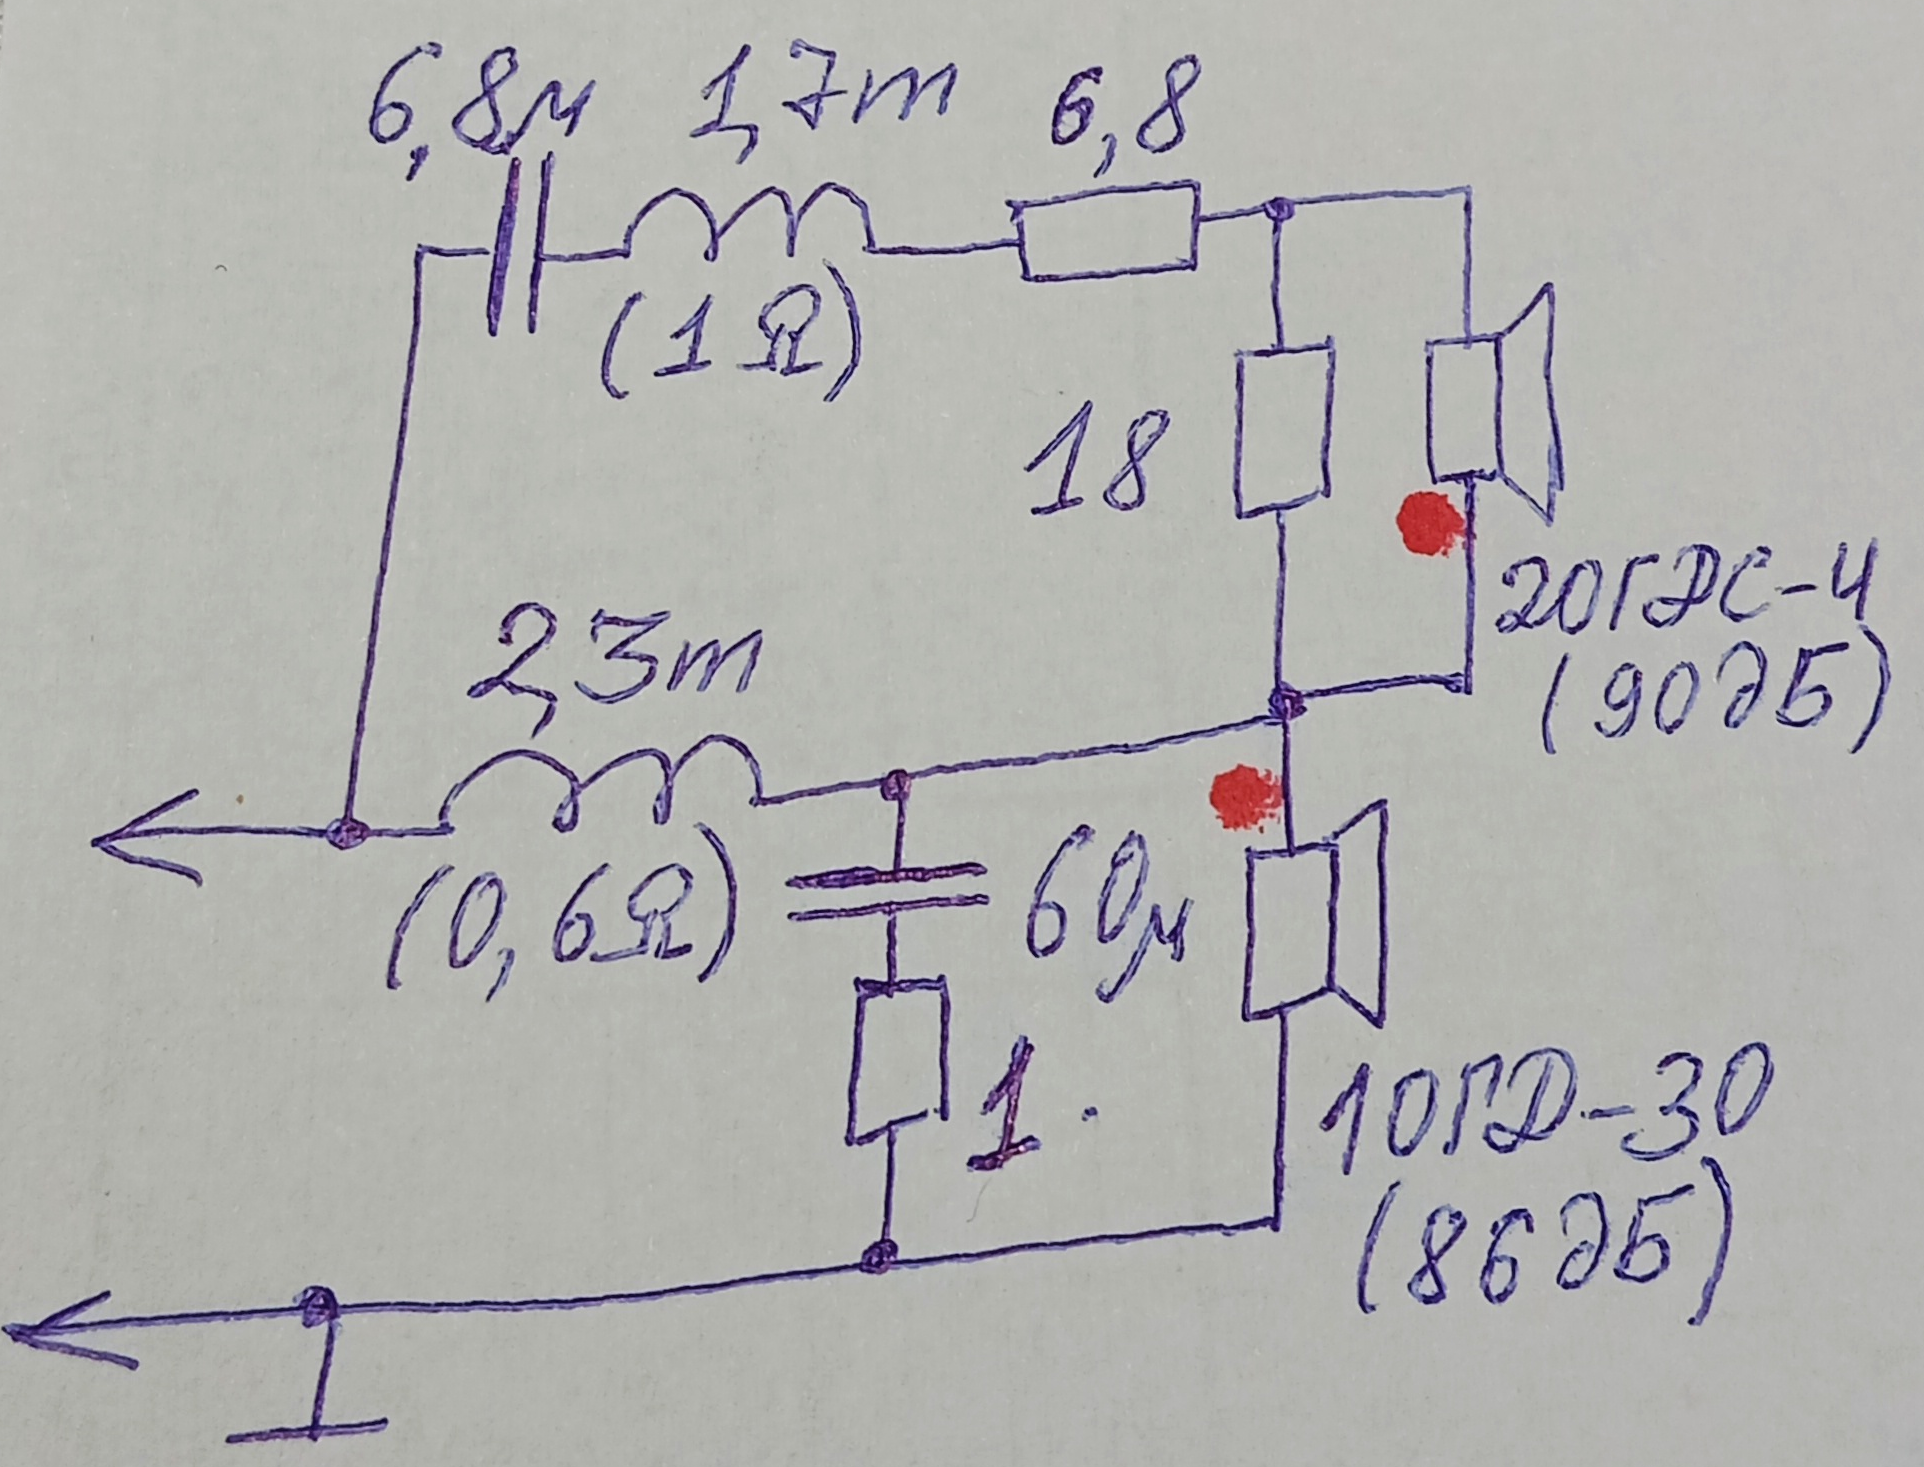 6,8μ 1,7m 6,8
(1Ω)
18
20ГДС-4
(90дБ)
2,3m
(0,6Ω)
60μ
1.
10ГД-30
(86дБ)